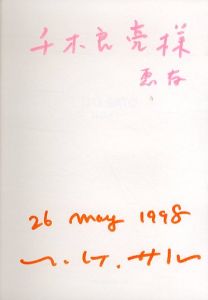 千木良亮様
恵存
26 may 1998